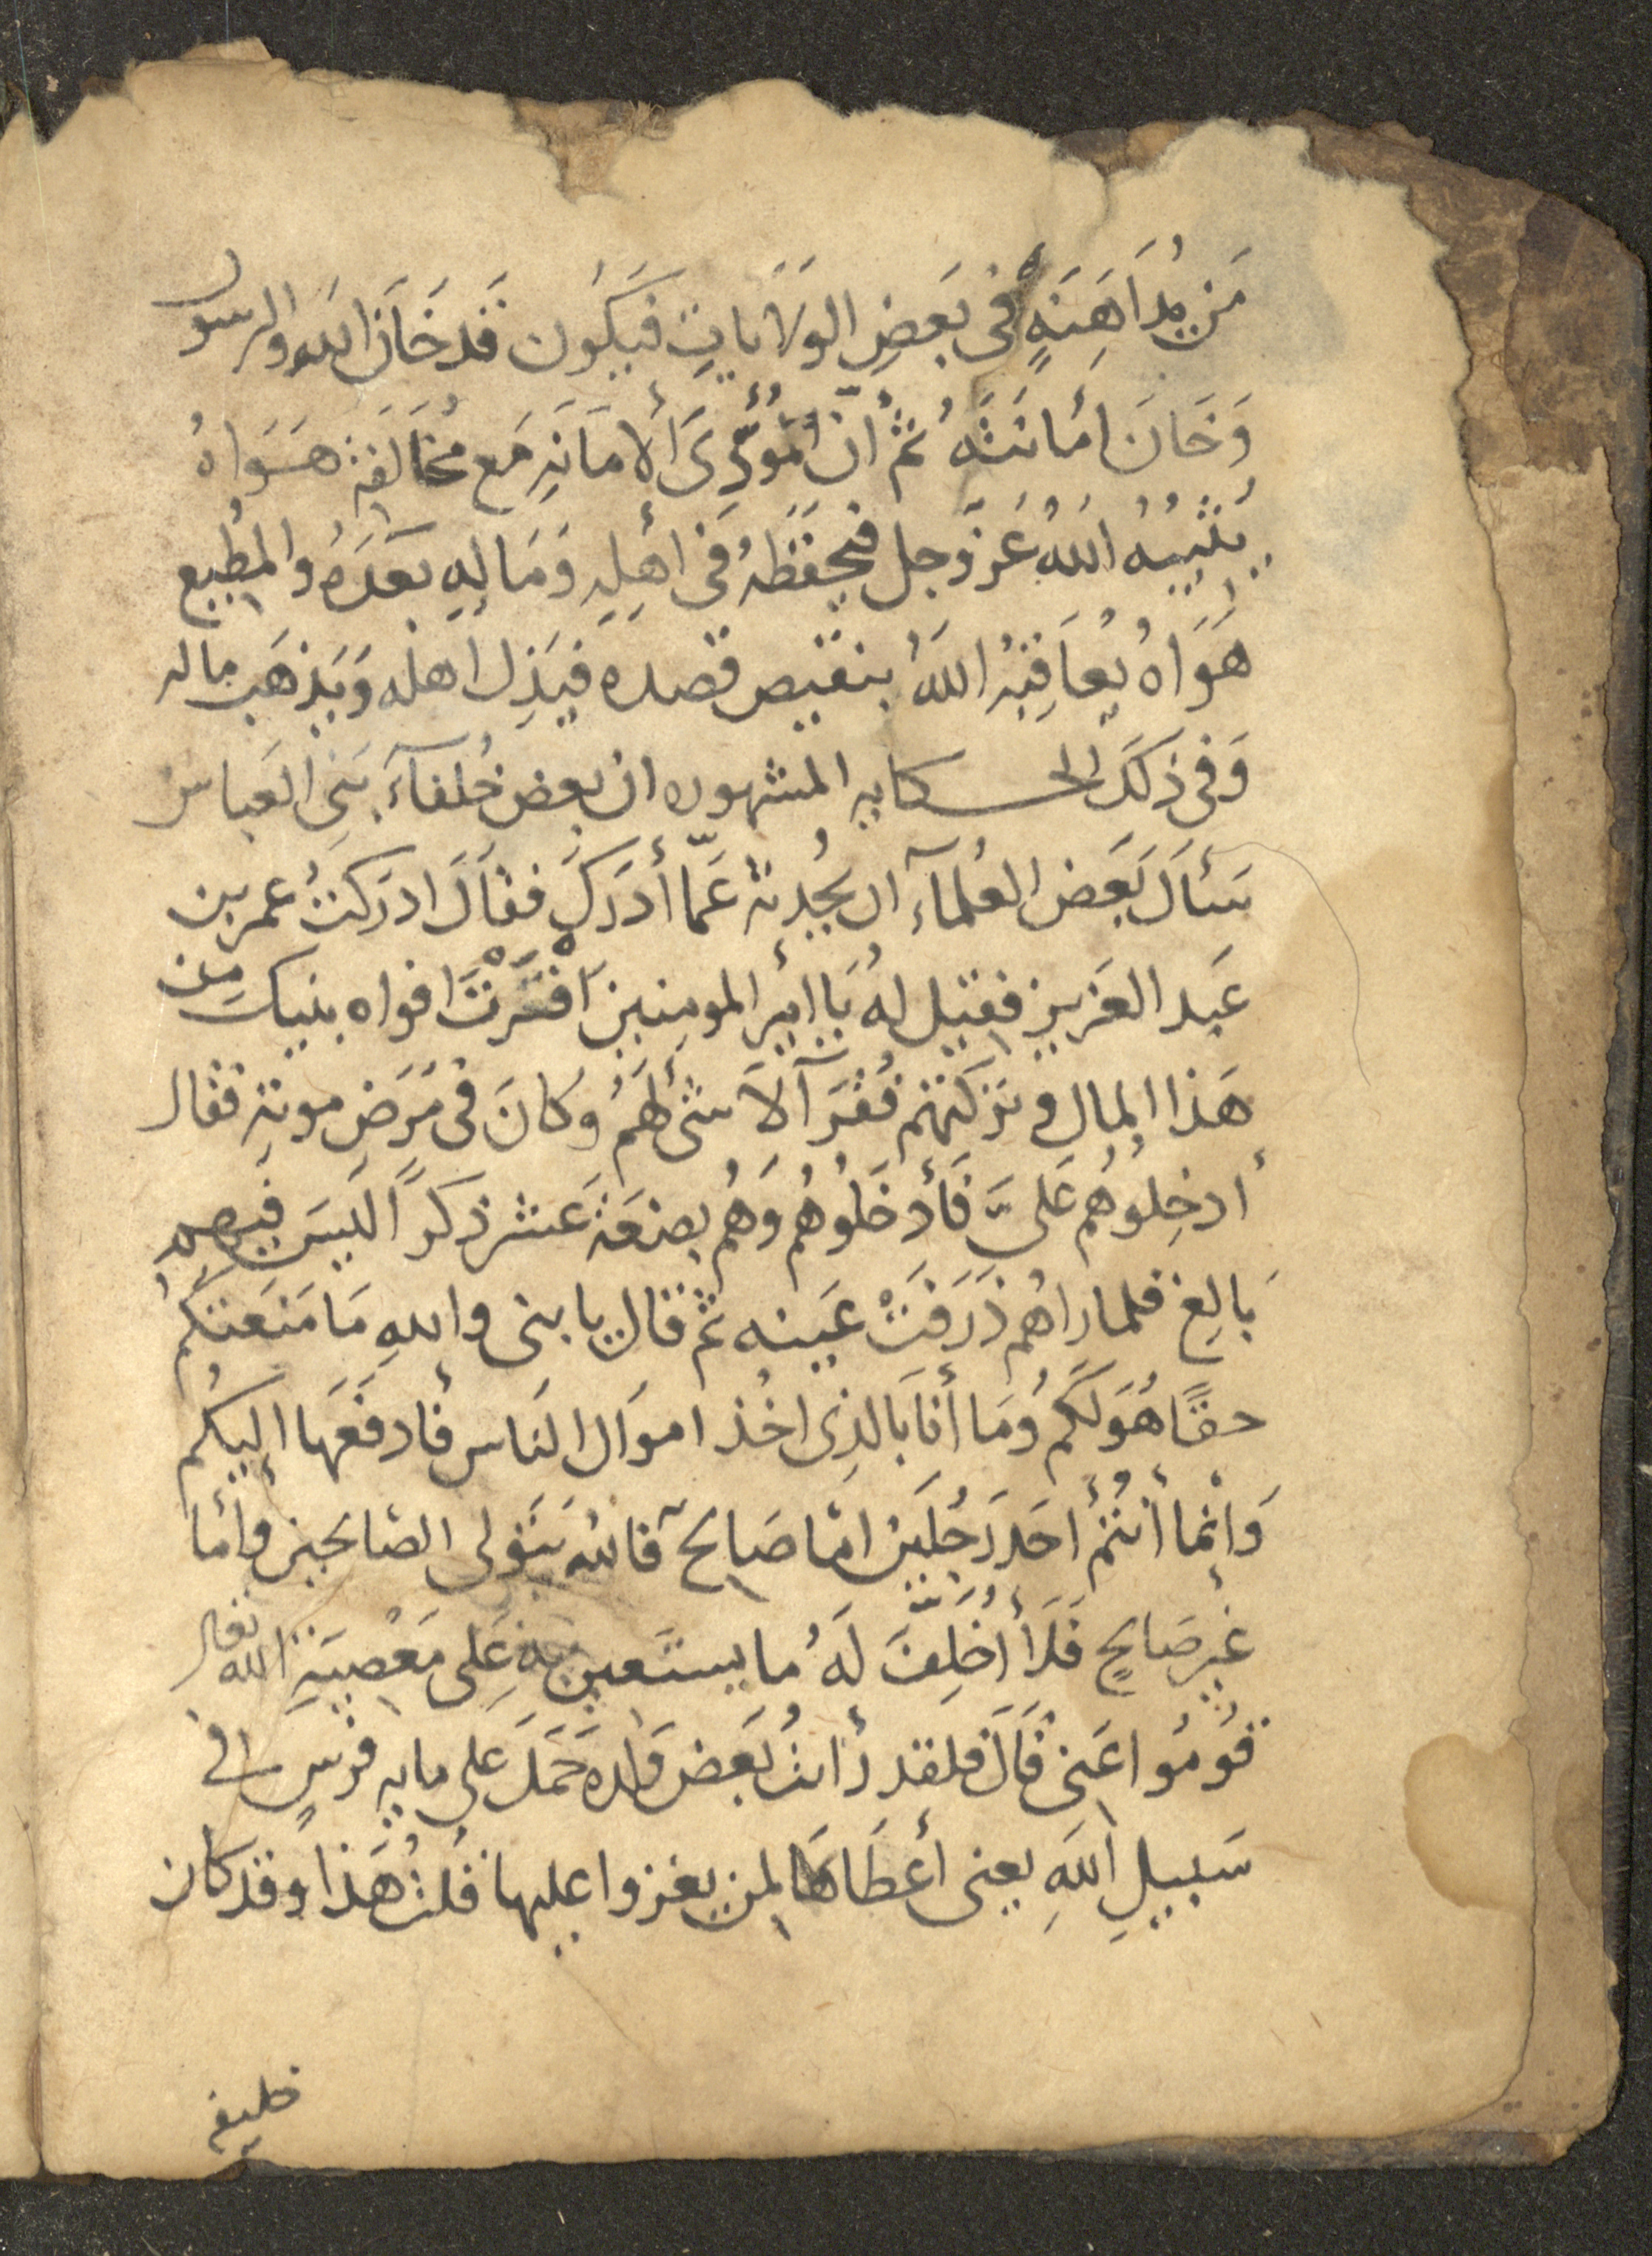 مَن يُدَاهِنَهٍ فى بَعَضِ الوَلَايَاتِ فَيَكُون قَد خَانَ اللهَ والرسول
وَخَانَ أمانَتَهُ ثُمَّ أنّ المُؤَدِّىَ ألامَانَةِ مَع مُخَالَفَةِ هَوَاهُ
يُثَبِّتُهُ اللهُ عَزّ وجل فيَحفَظَهُ فى أهلِهِ وَمَالِهِ بَعَدَهُ والمُطِيع
هَوَاهُ يُعَاقِبُهُ اللهُ بنقيص قصده فيَذِل اهله وَيَذهَب ماله
وَفى ذَلكَ الحكايه المشهوره ان بعض خُلفآءَ بَنِى العَباس
سَئأَلَ بَعَض العُلمآءَ ان يُحدثهُ عَمّا أدَرَكَ فقالَ ادرَكتُ عمر بن
عَبد العَزيز فقيل لهُ يَا امير المومنين اَفْقَرْتَ افواه بنيك مِن
هَذا المال وتَركتهُم فُقَرآ لَا شَئ لَهُم وكانَ فى مَرَض موته فقال
أدخِلُوهُم عَلىَّ فَأدخَلُوهُم وَهُم بضعَة عَشر ذكراً لَيسَ فيهم
بَالِغ فلما راهُم ذَرَفَتْ عَينه ثم قال يا بنى واللهِ مَا مَنَعتكُم
حقاً هُوَ لَكُم وُمَا أنا بَالذِى اخُذ اموَال النَاس فأدفَعَها إليكُم
وَإنما أنتُم أحَد رَجُلَين امّا صَالح فالله يَتَولى الصَالحين وأما
غير صَالحٍ فَلَا أُخَلِّفَ لَهُ ما يستَعين به عَلى مَعْصِيَةِ الله تعالى
قومُوا عَنى قَالَ فلقد رأيتُ بَعَض وَلده حَمَلَ عَلى مايه فرَسٍ فى
سَبيلِ اللهِ يعنى أعطَاهَا لمن يغزوا عليها قُلتُ هَذا وقد كان
خليفه